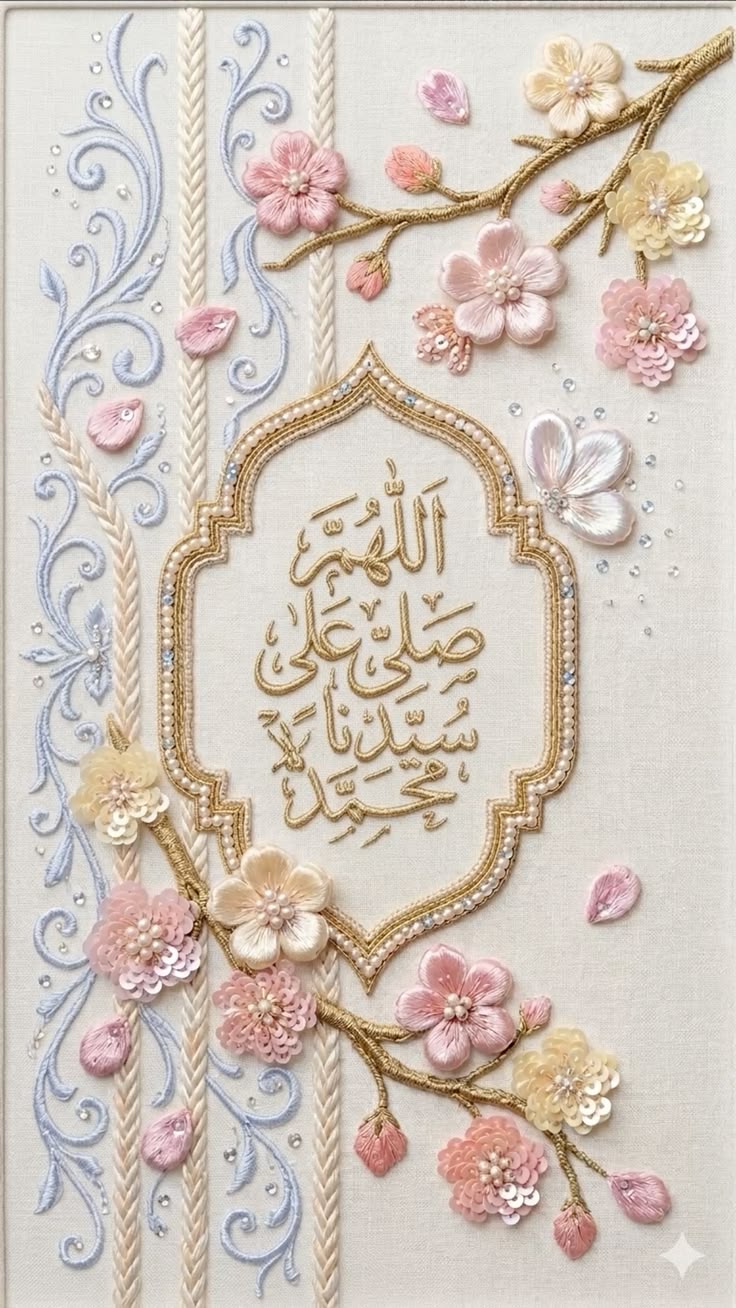 اللَّهُمَّ
صَلِّي عَلَى
سُيِّدِنَا
مُحَمَّد